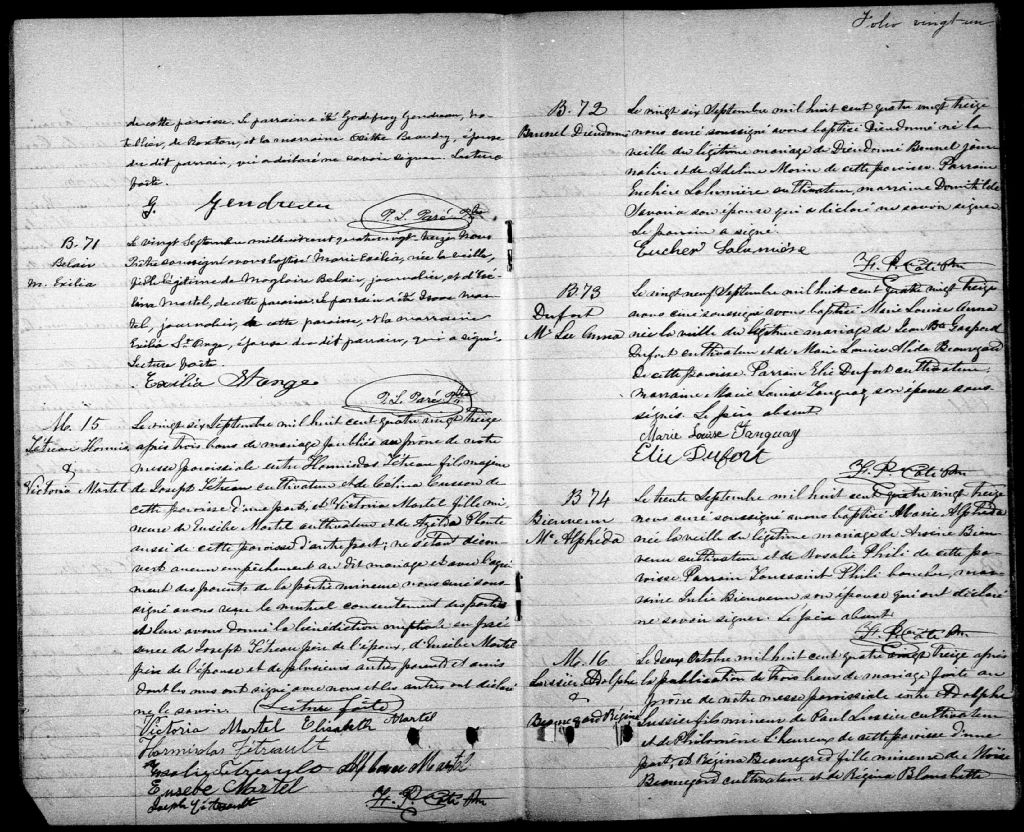 de cette paroisse. Le parrain a été Godefroy Gendreau, hô-
tellier, de Roxton, et la marraine Beaudry, épouse
du dit parrain, qui a déclaré ne savoir signer. Lecture
faite.
G. Gendreau
P. L. Paré Ptre
B. 71
Belair
M. Exilia
Le vingt Septembre mil huit cent quatre vingt-treize Nous
Prêtre soussigné avons baptisé Marie Exilia, née la veille,
fille légitime de Magloire Belair, journalier, et d'Exi-
lina Martel, de cette paroisse. Le parrain a été Mar-
tel, journalier, de cette paroisse, et la marraine
Exilia St. Onge, épouse du dit parrain, qui a signé.
Lecture faite.
Exilia Stange
P. L. Paré Ptre
M. 15
Tétreau Hormis.
&
Victoria Martel
Le vingt six Septembre mil huit cent quatre vingt treize
après trois bans de mariage publiés au prône de notre
messe paroissiale entre Hormisdas Tétreau fils majeur
de Joseph Tétreau cultivateur et de Célina Casson de
cette paroisse d'une part, et Victoria Martel fille mi-
neure de Eusèbe Martel cultivateur et de Azélda Plante
aussi de cette paroisse d'autre part; ne s'étant décou-
vert aucun empêchement au dit mariage et avec l'agré-
ment des parents de la partie mineure nous curé sous-
signé avons reçu le mutuel consentement des parties
et leur avons donné la bénédiction nuptiale en pré-
sence de Joseph Tétreau père de l'époux, d'Eusèbe Martel
père de l'épouse et de plusieurs autres parents et amis
dont les uns ont signé avec nous et les autres ont déclaré
ne le savoir. Lecture faite
Victoria Martel Elisabeth Martel
Hormisdas Tétreault
Rosalie Tétreault Albani Martel
Eusebe Martel
Joseph Tétreault H. P. Côté Ptre
Folio vingt un
B. 72
Brunel Dieudonné
Le vingt six Septembre mil huit cent quatre vingt treize
nous curé soussigné avons baptisé Dieudonné né la
veille du légitime mariage de Dieudonné Brunel jour-
nalier et de Adeline Morin de cette paroisse. Parrain
Euchère Lalumière cultivateur, marraine Domithilde
Savaria son épouse qui a déclaré ne savoir signer
Le parrain a signé
Eucher Lalumière
H. P. Côté Ptre
B 73
Dufort
Mie Lse Anna
Le vingt neuf Septembre mil huit cent quatre vingt treize
nous curé soussigné avons baptisé Marie Louise Anna
née la veille du légitime mariage de Léon Bte Gaspard
Dufort cultivateur et de Marie Louise Alida Beauregard
de cette paroisse. Parrain Elie Dufort cultivateur,
marraine Marie Louise Tanguay son épouse sous-
signés. Le père absent
Marie Louise Tanguay
Elie Dufort
H. P. Côté Ptre
B 74
Bienvenu
Mie Alphéda
Le trente Septembre mil huit cent quatre vingt treize
nous curé soussigné avons baptisé Marie Alphéda
née la veille du légitime mariage de Arsène Bien-
venu cultivateur et de Rosalie Phili de cette pa-
roisse Parrain Toussaint Phili boucher, mar-
raine Julie Bienvenu son épouse qui ont déclaré
ne savoir signer. Le père absent
H. P. Côté Ptre
M. 16
Lussier Adolphe
&
Beauregard Régina
Le deux Octobre mil huit cent quatre vingt treize après
la publication de trois bans de mariage faite au
prône de notre messe paroissiale entre Adolphe
Lussier fils mineur de Paul Lussier cultivateur
et de Philomène L'heureux de cette paroisse d'une
part, et Régina Beauregard fille mineure de Moïse
Beauregard cultivateur et de Régina Blanchette